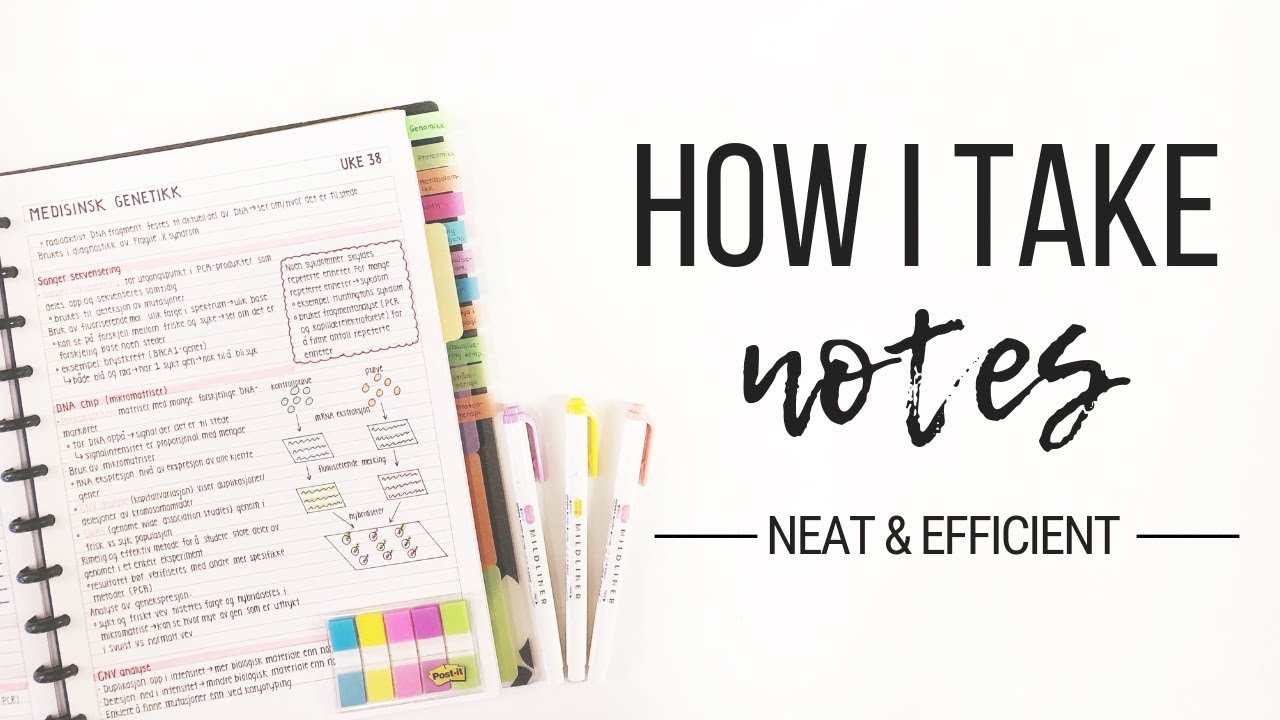 UKE 38
MEDISINSK GENETIKK
• radioaktivt DNA fragment festes til aktuell del av DNA→ser om/hvor det er til stede
Brukes i diagnostikk av Fragile X syndrom
Sanger sekvensering
tar utgangspunkt i PCR-produkter som
deles opp og sekvenseres samtidig
• brukes til deteksjon av mutasjoner
Bruk av fluoriserende mol. ulik farge i spektrum→ulik base
• kan se på forskjell mellom friske og syke→ser om det er
forskjellig base noen steder
• eksempel: brystkreft (BRCA1-genet)
↳ både blå og rød→har 1 sykt gen→nok til å bli syk
Noen sykdommer skyldes
repeterte enheter. For mange
repeterte enheter→sykdom
• eksempel: Huntingtons sykdom
• bruker fragmentanalyse (PCR
og kapillærelektroforese) for
å finne antall repeterte
enheter
DNA chip (mikromatriser)
matriser med mange forskjellige DNA-
markører
• tar DNA oppå→signal der det er til stede
↳ signalintensitet er proporsjonal med mengde
Bruk av mikromatriser
• RNA ekspresjon: nivå av ekspresjon av alle kjente
gener
(kopitallvariasjon) viser duplikasjoner/
delesjoner av kromosomområder
(genome wide association studies): genom i
frisk vs syk populasjon
Rimelig og effektiv metode for å studere store deler av
genomet i et enkelt eksperiment
• resultatet bør verifiseres med andre mer spesifikke
metoder (PCR)
Analyse av genekspresjon
• sykt og friskt vev tilsettes farge og hybridiseres i
mikromatrise→kan se hvor mye av gen som er uttrykt
i svulst vs normalt vev
kontrollprøve
prøve
mRNA ekstraksjon
fluoriserende merking
hybridiserer
CNV analyse
• Duplikasjon: opp i intensitet→mer biologisk materiale enn
• Delesjon: ned i intensitet→mindre biologisk materiale enn
Enklere å finne mutasjoner enn ved karyotyping
PCR)
Genomikk
Proteomikk
Metabolom-
ikk
Proton-
terapi
Post-it
MILDLINER
MILDLINER
MILDLINER
HOW I TAKE
notes
NEAT & EFFICIENT